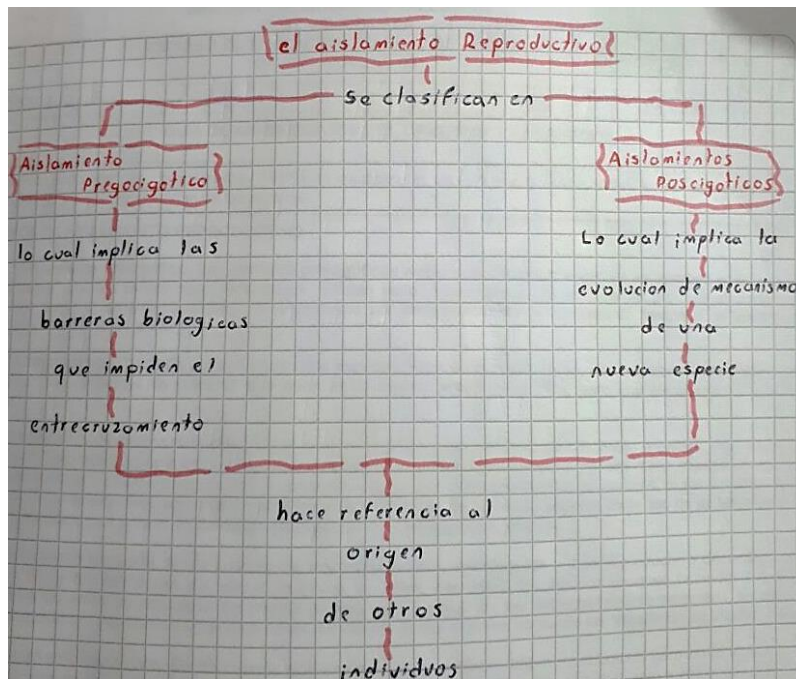 el aislamiento Reproductivo
se clasifican en
Aislamiento
Pregocigotico
lo cual implica las
barreras biologicas
que impiden el
entrecruzamiento
Aislamientos
Poscigoticos
Lo cual implica la
evolucion de mecanismo
de una
nueva especie
hace referencia al
origen
de otros
individuos